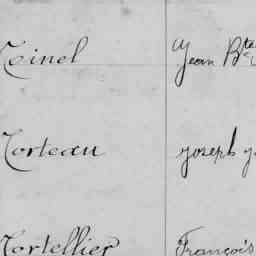 Tinel Jean Bte
Torteau Joseph
Tortellier François